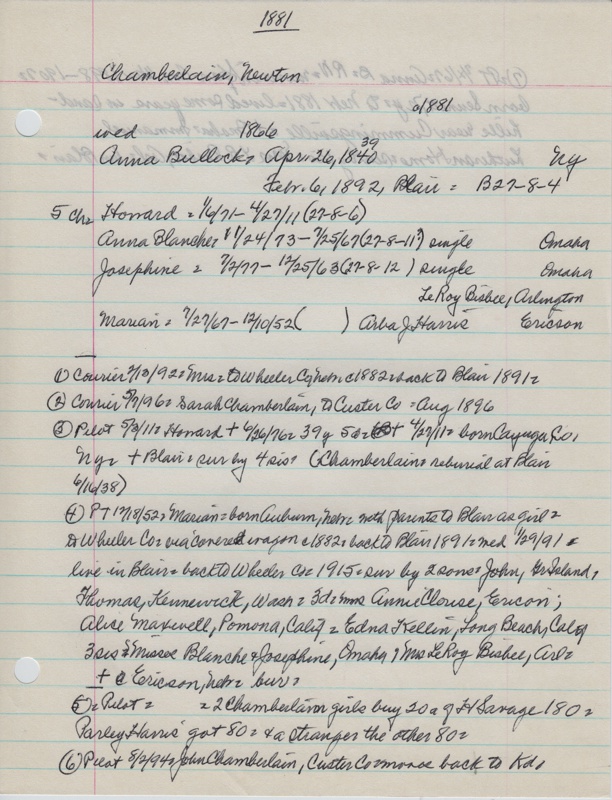 1881
Chamberlain, Newton
a1881
wed 1866
39
Anna Bullock = Apr. 26, 1840 Ny
Febr. 6, 1892, Blair = B27-8-4
5 Ch = Howard = 1/6/71 - 4/27/11 (27-8-6)
Anna Blanche = 1/24/73 - 7/25/67 (27-8-11) single Omaha
Josephine = 7/2/77 - 12/25/63 (27-8-12) single Omaha
LeRoy Bisbee, Arlington
Marian = 7/27/67 - 12/10/52 ( ) Arba J Harris Ericson
① Courier 2/13/92 = Mrs = to Wheeler Co, Nebr = c1882 = back to Blair 1891 =
② Courier 5/7/96 = Sarah Chamberlain, to Custer Co = Aug 1896
③ Pilot 5/3/11 = Howard + 39 y 5d = 4/27/11 = born Cayuga Co,
Ny = + Blair = sur by 4 sis = (Chamberlain = reburial at Blair
6/16/38)
④ PT 12/18/52 = Marian = born Auburn, = with parents to Blair as girl =
to Wheeler Co = via covered wagon c1882 = back to Blair 1891 = med 1/29/91 =
live in Blair = back to Wheeler Co = 1915 = sur by 2 sons = John, Gr Island,
Thomas, Kennewick, Wash = 3d = Mrs Annie Clouse, Ericson;
Alice Maxwell, Pomona, Calif = Edna Kellin, Long Beach, Calif
3 sis = Misses Blanche & Josephine, Omaha, Mrs LeRoy Bisbee, Arl =
+ @ Ericson, Nebr = bur =
⑤ = Pilot = = 2 Chamberlain girls buy 20 a of H Savage 180 =
Parley Harris got 80 = & a stranger the other 80 =
⑥ Pilot 8/2/94 = John Chamberlain, Custer Co = back to